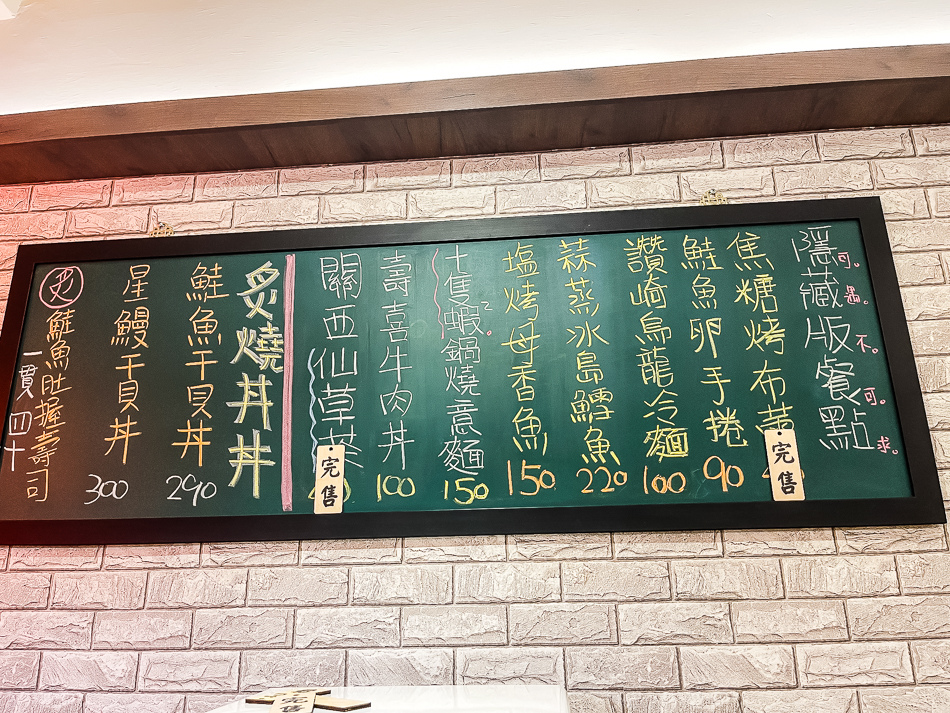 隱藏版餐點
可。遇。不。可。求。
焦糖烤布蕾
完售
鮭魚卵手捲 90
讚崎烏龍冷麵 100
蒜蒸冰島鱈魚 220
塩烤母香魚 150
十隻蝦鍋燒意麵 150
壽喜牛肉丼 100
關西仙草
完售
炙燒丼丼
鮭魚干貝丼 290
星鰻干貝丼 300
炙 鮭魚肚握壽司
一貫四十
完售